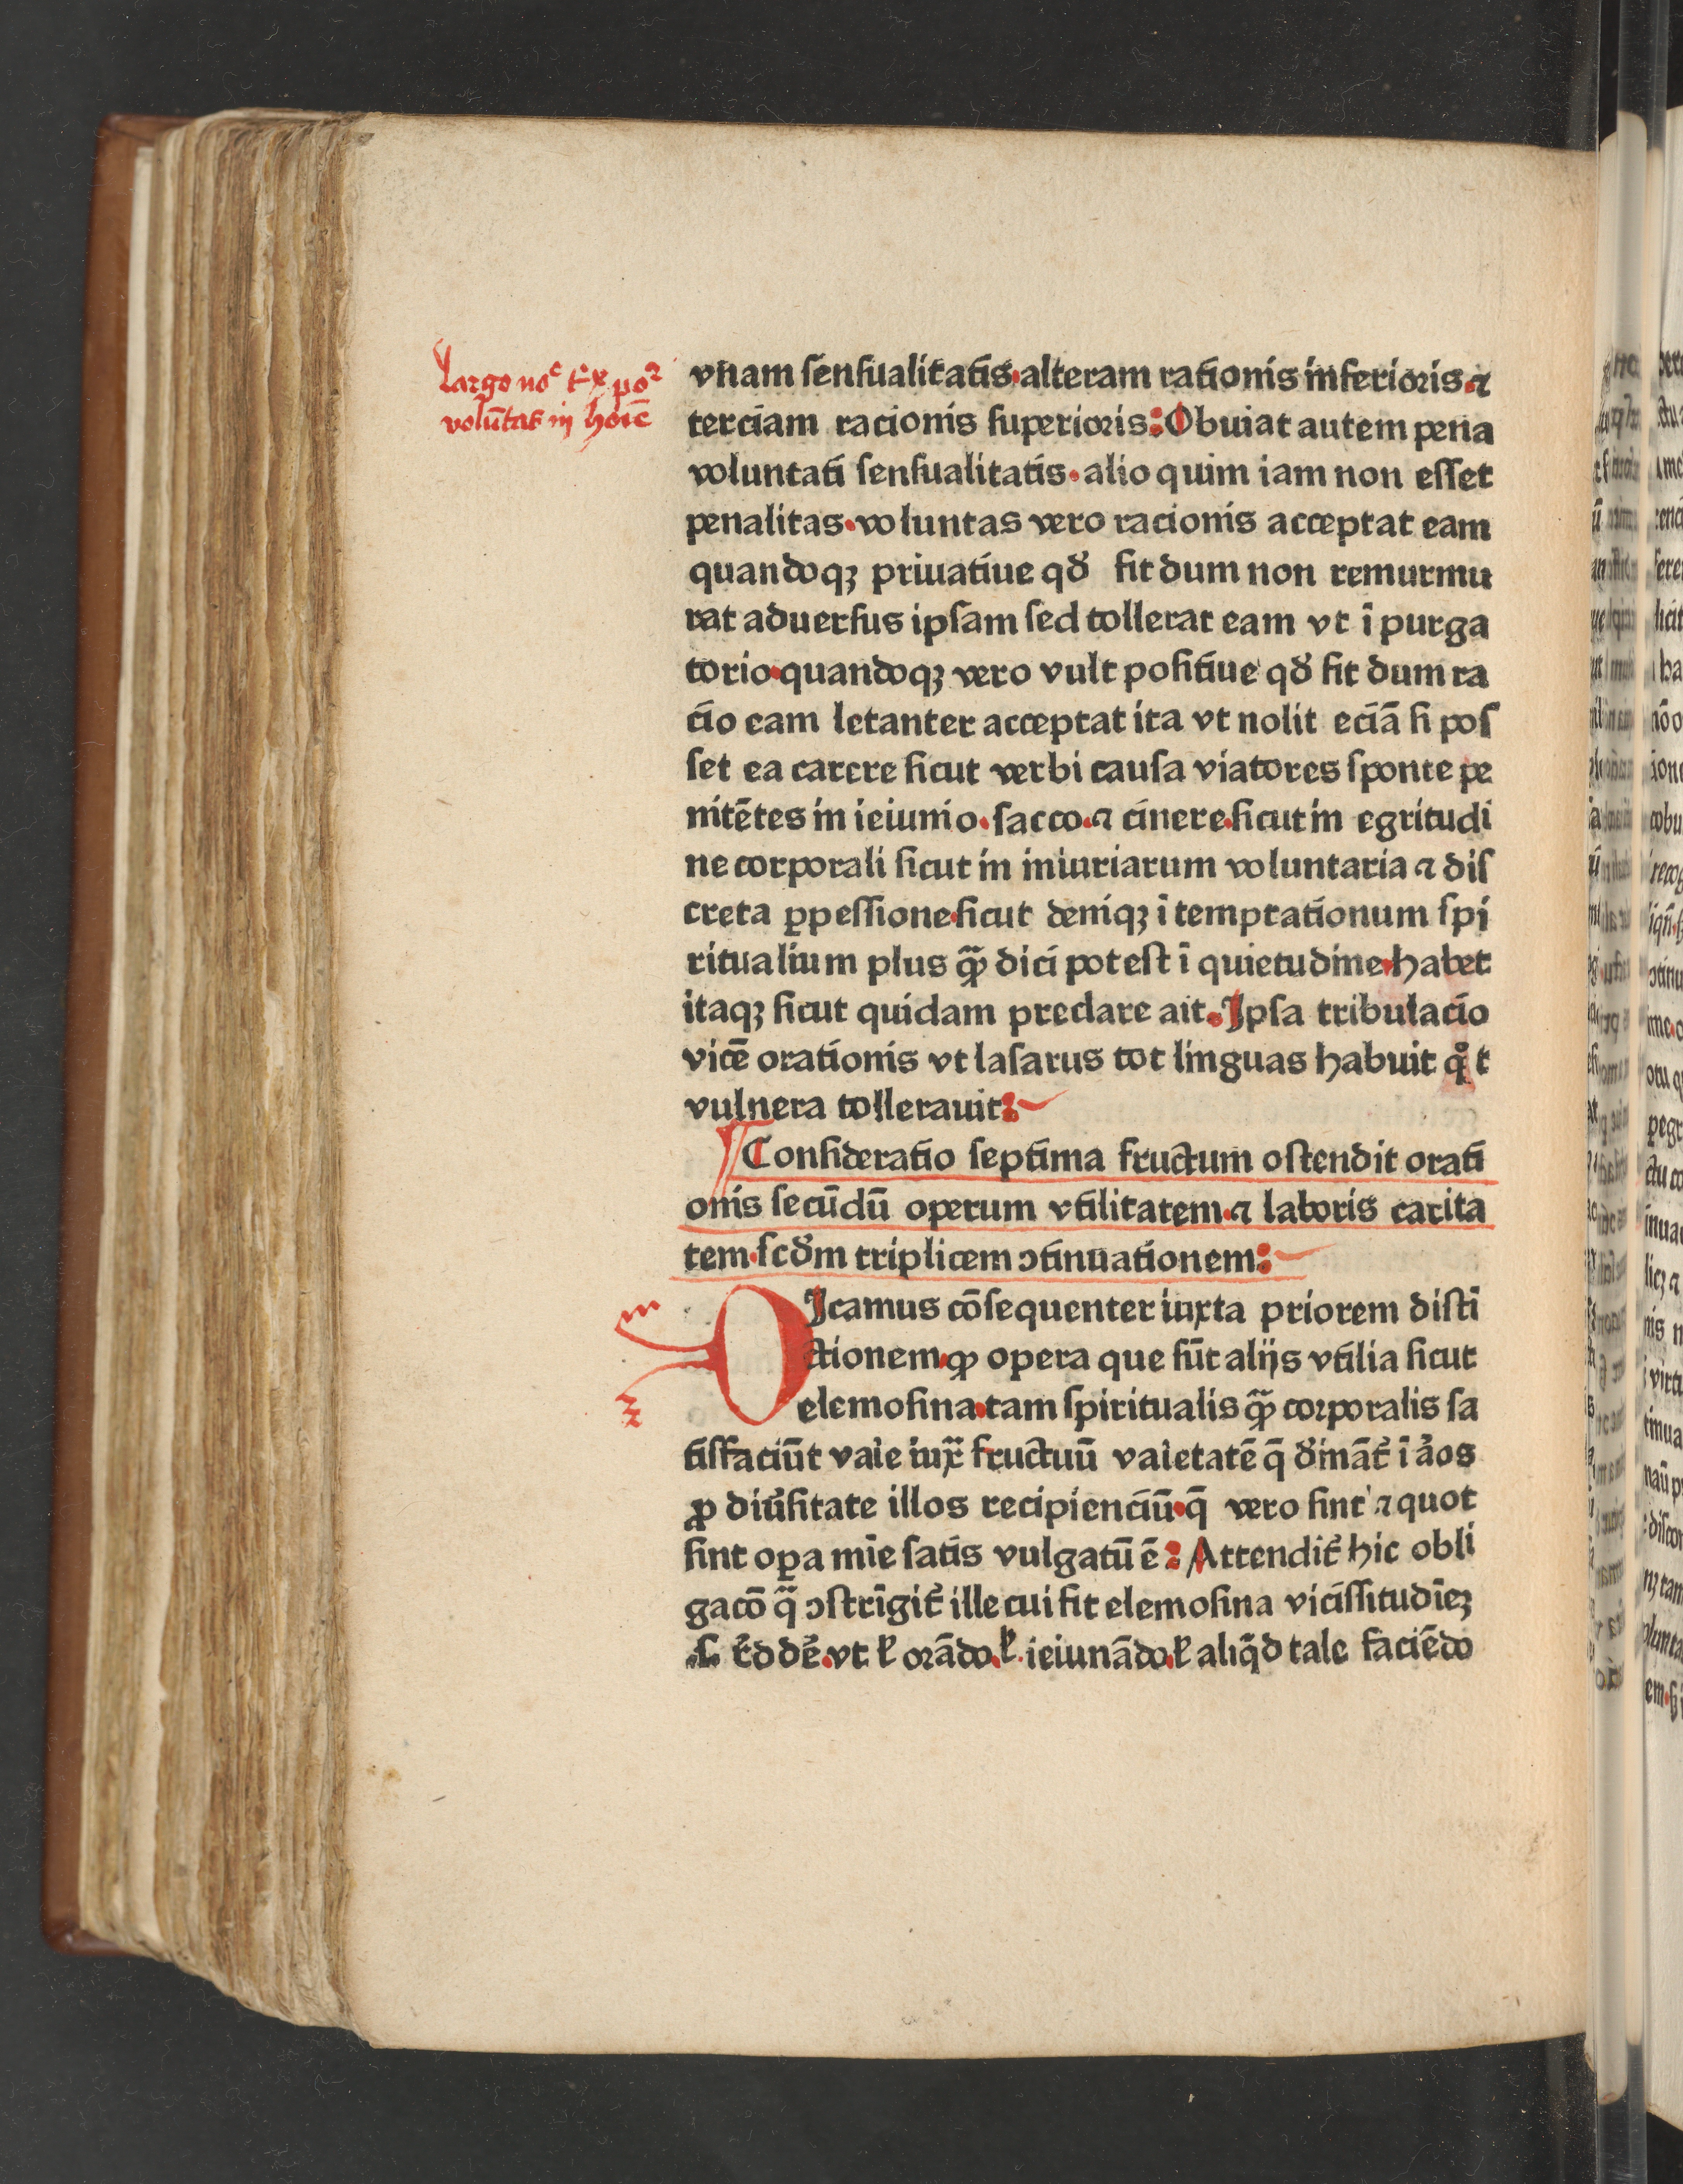 largo noͤ tͤx po
volūtat in hoīē
vnam senſualitatis·alteram rationis inferioris ⁊
terciam racionis ſuperioris: Obuiat autem pena
voluntati ſenſualitatis·alio quim iam non eſſet
penalitas·voluntas vero racionis acceptat eam
quandoqꝫ priuatiue qď fit dum non remurmu
rat aduerſus ipſam ſed tollerat eam vt ī purga
torio·quandoqꝫ vero vult poſitiue qď fit dum ra
cio eam letanter acceptat ita vt nolit eciā ſi poſ
ſet ea carere ſicut verbi cauſa viatores ſponte pe
nitētes in ieiunio·ſacco·⁊ cinere·ſicut in egritudi
ne corporali ſicut in iniuriarum voluntaria ⁊ diſ
creta ꝑpeſſione·ſicut deniqꝫ ī temptationum ſpi
ritualium plus qȝ̄ dici poteſt ī quietudine·habet
itaqꝫ ſicut quidam preclare ait. Jpſa tribulacio
vicē orationis vt laſarus tot linguas habuit qͦt
vulnera tollerauit:
¶ Conſideratio ſeptima fructum oſtendit orati
onis ſecūdū operum vtilitatem·⁊ laboris carita
tem·ſcďm triplicem ↄtinuationem:
DJcamus cōſequenter iuxta priorem diſti
ctionem·ꝙ opera que ſūt alijs vtilia ſicut
elemoſina·tam ſpiritualis qȝ̄ corporalis ſa
tiſfaciūt vaīe iux̄ fructuū vaīetatē q̄ ďināt̉ ī a̓os
ꝓ diu̓ſitate illos recipienciū·q̄ vero ſint ⁊ quot
ſint oꝑa mīe ſatis vulgatū ē: Attendit̉ hic obli
gacō q̄ ↄſtrīgit̉ ille cui fit elemoſina viciſſitudīeꝫ
vt ł orādo·ł ieiunādo·ł aliq̄d tale faciēdo